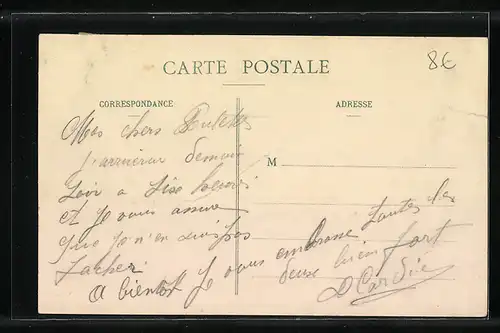 8€
CARTE POSTALE
CORRESPONDANCE
ADRESSE
M
Mes chers
j'arriverai demain
Soir a Six heures
et je vous assure
que je n'en suis pas
A bientôt je vous embrasse toutes les
deux bien fort